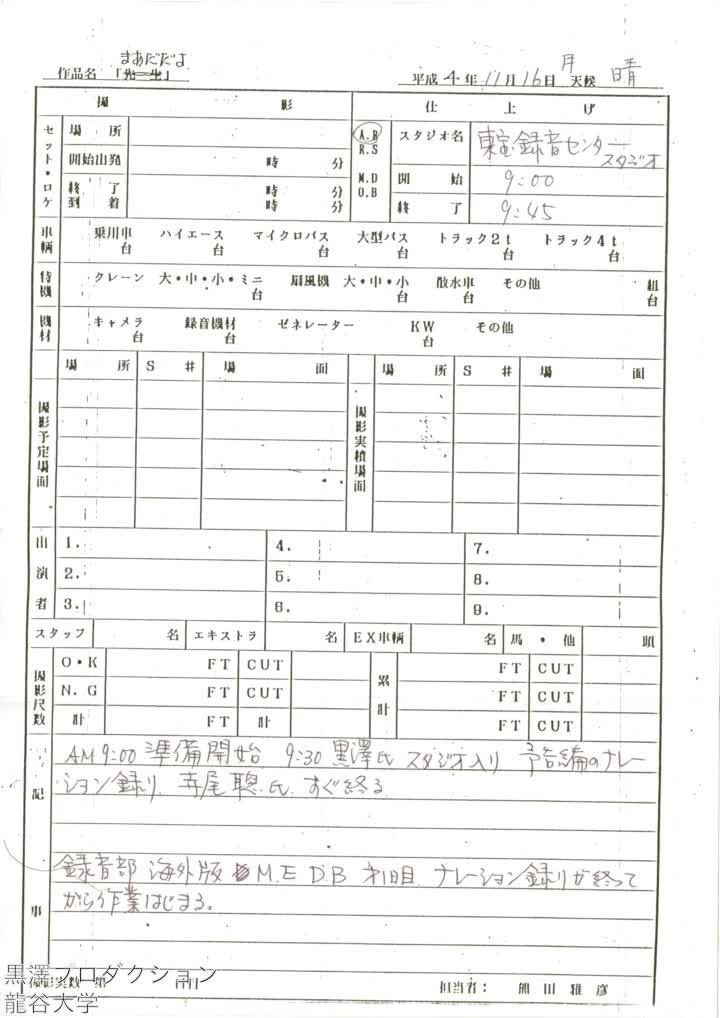 まあだだよ
作品名 「先生」 平成 4 年 11 月 16 日 月 天候 晴
撮 影 仕 上 げ
セット・ロケ 場 所 A.R R.S M.D O.B スタジオ名 東宝録音センタースタジオ
開始出発 時 分 開 始 9:00
終 了 到 着 時 分 時 分 終 了 9:45
車輌 乗用車 台 ハイエース 台 マイクロバス 台 大型バス 台 トラック2t 台 トラック4t 台
特機 クレーン 大・中・小・ミニ 台 扇風機 大・中・小 台 散水車 台 その他 組 台
機材 キャメラ 台 録音機材 台 ゼネレーター KW 台 その他
撮影予定場面 場 所 S # 場 面 撮影実績場面 場 所 S # 場 面
出演者 1. 4. 7.
2. 5. 8.
3. 6. 9.
スタッフ 名 エキストラ 名 EX車輌 名 馬・他 頭
撮影尺数 O・K FT CUT 累計 FT CUT
N.G FT CUT FT CUT
計 FT 計 FT CUT
記事
AM 9:00 準備開始 9:30 黒澤氏 スタジオ入り 予告編のナレー
ション録り 寺尾聰氏 すぐ終る
録音部 海外版 M.E D.B 才1日目 ナレーション録りが終って
から作業はじまる。
撮影実数 第 日 担当者: 熊田雅彦
黒澤プロダクション
龍谷大学